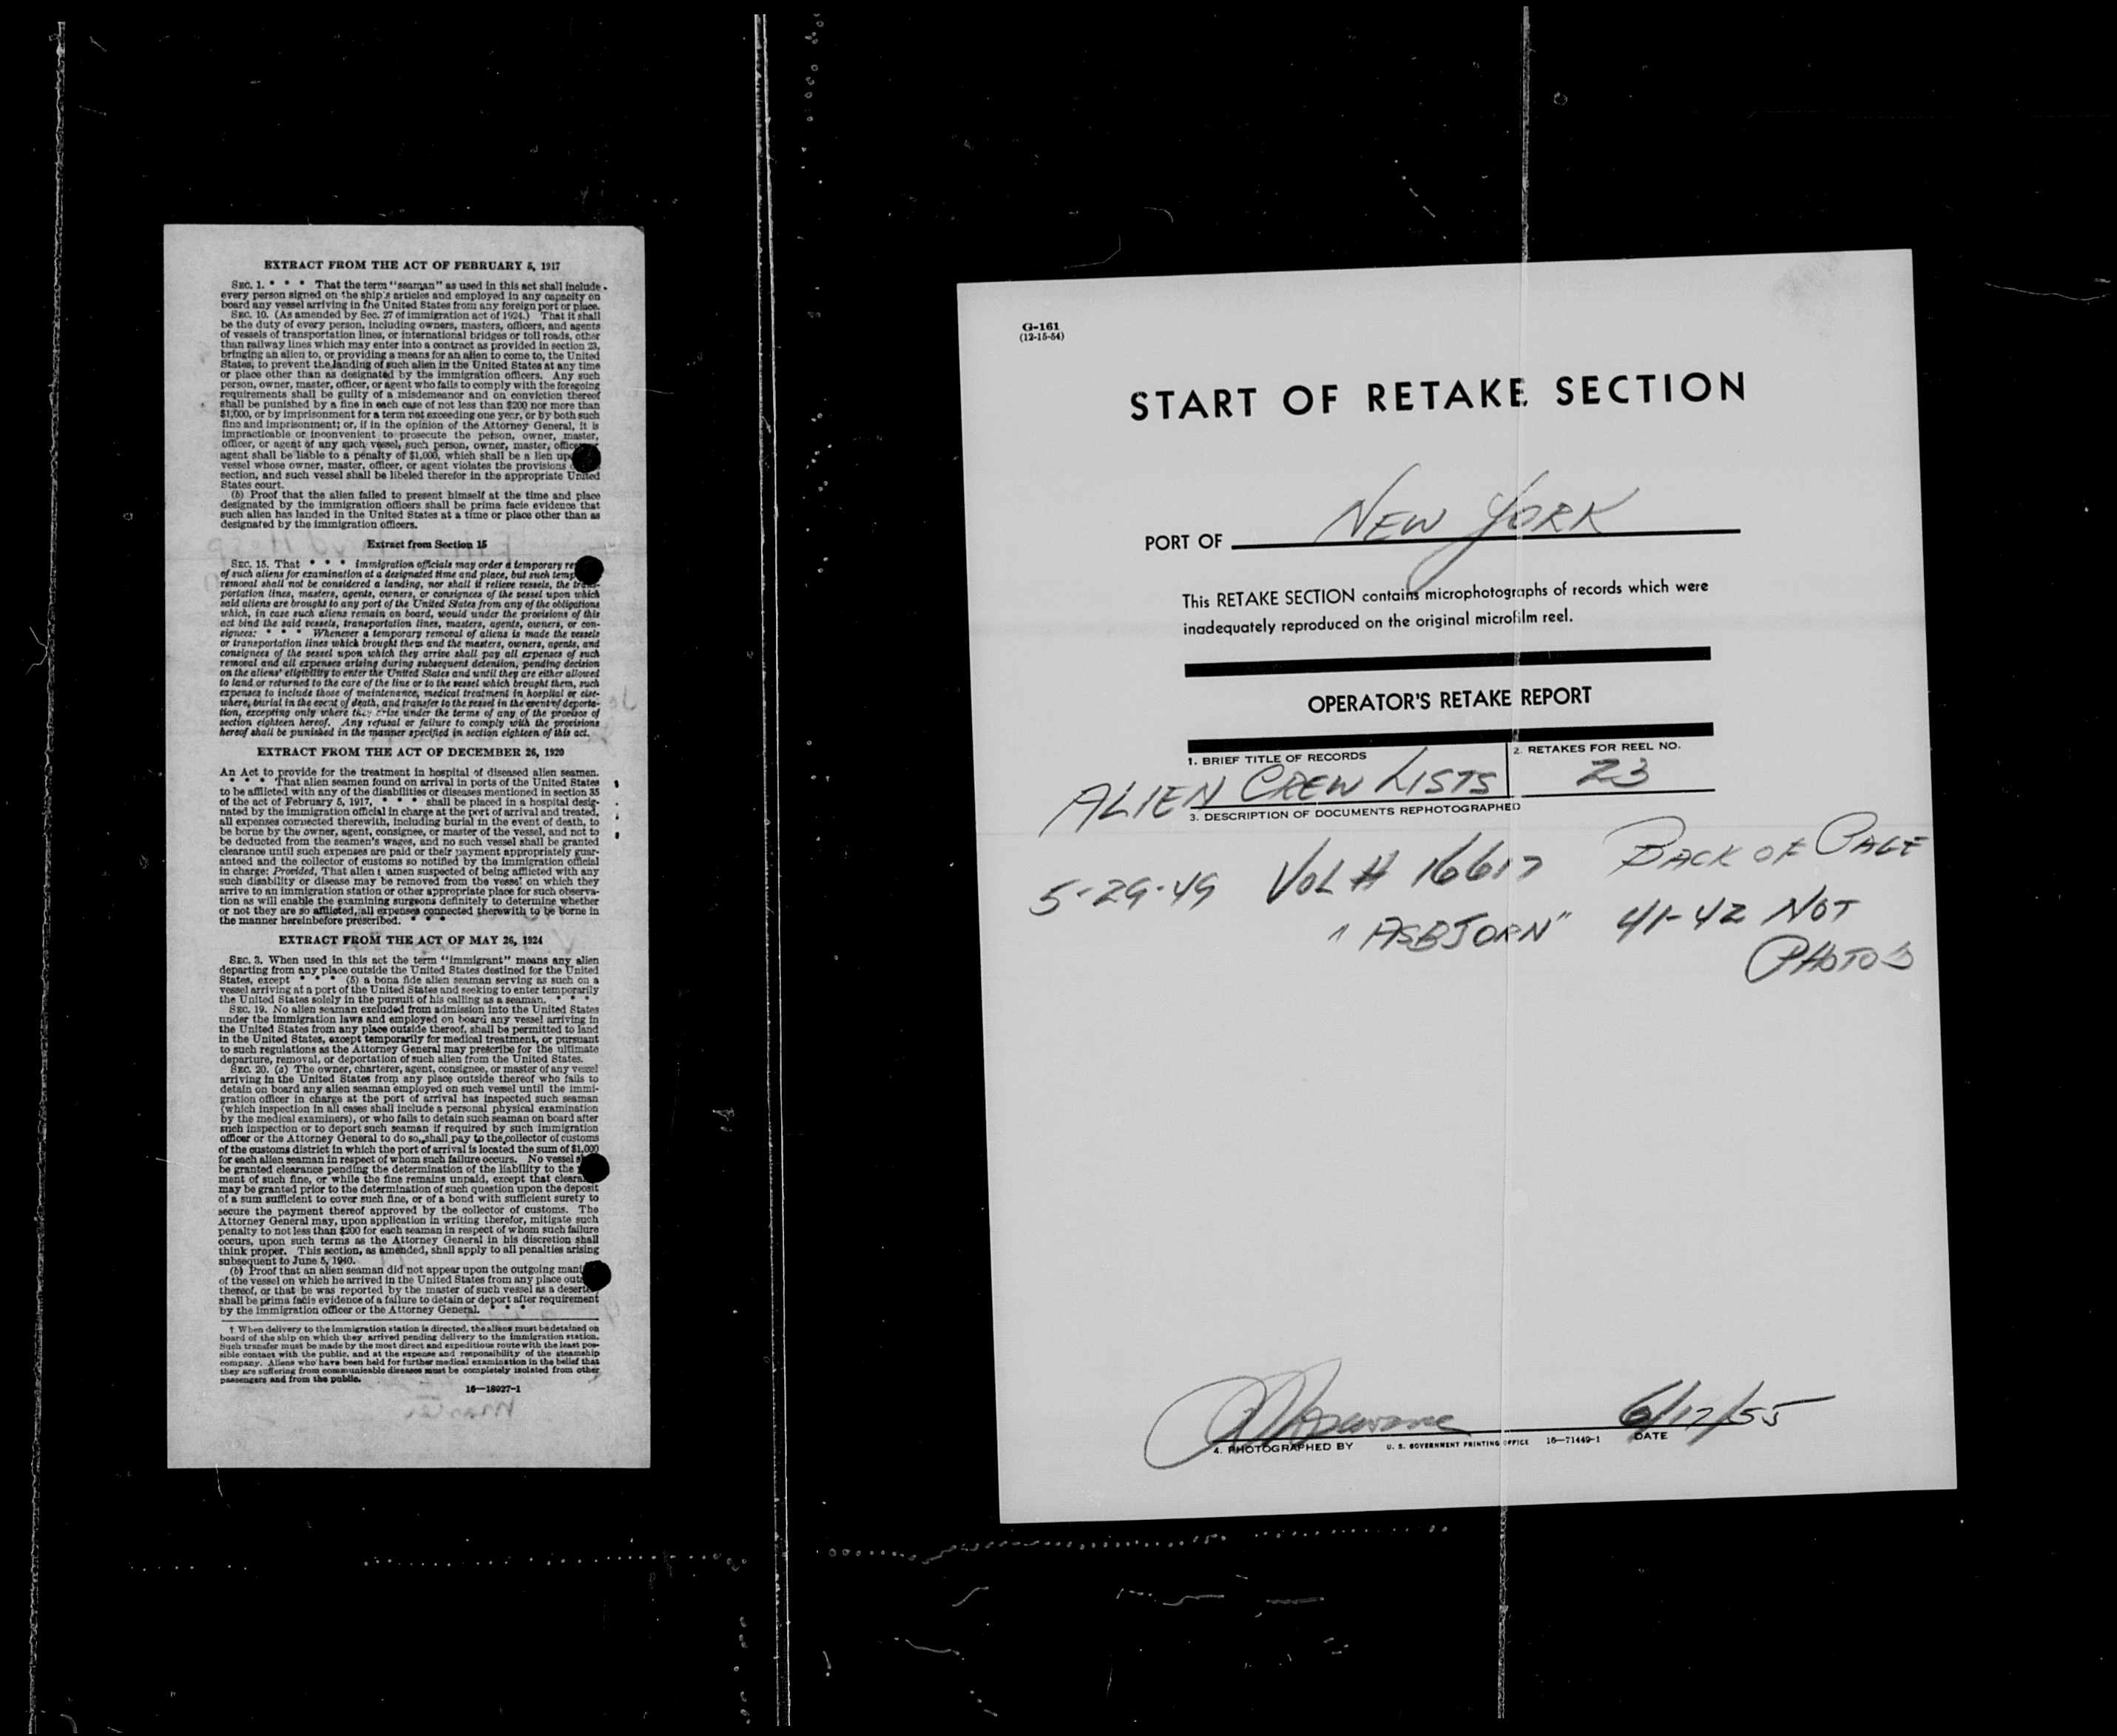 EXTRACT FROM THE ACT OF FEBRUARY 5, 1917
SEC. 1. * * * That the term "seaman" as used in this act shall include
every person signed on the ship's articles and employed in any capacity on
board any vessel arriving in the United States from any foreign port or place.
SEC. 10. (As amended by Sec. 27 of immigration act of 1924.) That it shall
be the duty of every person, including owners, masters, officers, and agents
of vessels of transportation lines, or international bridges or toll roads, other
than railway lines which may enter into a contract as provided in section 23,
bringing an alien to, or providing a means for an alien to come to, the United
States, to prevent the landing of such alien in the United States at any time
or place other than as designated by the immigration officers. Any such
person, owner, master, officer, or agent who fails to comply with the foregoing
requirements shall be guilty of a misdemeanor and on conviction thereof
shall be punished by a fine in each case of not less than $200 nor more than
$1,000, or by imprisonment for a term not exceeding one year, or by both such
fine and imprisonment; or, if in the opinion of the Attorney General, it is
impracticable or inconvenient to prosecute the person, owner, master,
officer, or agent of any such vessel, such person, owner, master, officer
agent shall be liable to a penalty of $1,000, which shall be a lien up
vessel whose owner, master, officer, or agent violates the provisions
section, and such vessel shall be libeled therefor in the appropriate United
States court.
(b) Proof that the alien failed to present himself at the time and place
designated by the immigration officers shall be prima facie evidence that
such alien has landed in the United States at a time or place other than as
designated by the immigration officers.
Extract from Section 15
SEC. 15. That * * * immigration officials may order a temporary re
of such aliens for examination at a designated time and place, but such temp
removal shall not be considered a landing, nor shall it relieve vessels, the trans-
portation lines, masters, agents, owners, or consignees of the vessel upon which
said aliens are brought to any port of the United States from any of the obligations
which, in case such aliens remain on board, would under the provisions of this
act bind the said vessels, transportation lines, masters, agents, owners, or con-
signees: * * * Whenever a temporary removal of aliens is made the vessels
or transportation lines which brought them and the masters, owners, agents, and
consignees of the vessel upon which they arrive shall pay all expenses of such
removal and all expenses arising during subsequent detention, pending decision
on the aliens' eligibility to enter the United States and until they are either allowed
to land or returned to the care of the line or to the vessel which brought them, such
expenses to include those of maintenance, medical treatment in hospital or else-
where, burial in the event of death, and transfer to the vessel in the event of deporta-
tion, excepting only where they arise under the terms of any of the provisos of
section eighteen hereof. Any refusal or failure to comply with the provisions
hereof shall be punished in the manner specified in section eighteen of this act.
EXTRACT FROM THE ACT OF DECEMBER 26, 1920
An Act to provide for the treatment in hospital of diseased alien seamen.
* * * That alien seamen found on arrival in ports of the United States
to be afflicted with any of the disabilities or diseases mentioned in section 35
of the act of February 5, 1917, * * * shall be placed in a hospital desig-
nated by the immigration official in charge at the port of arrival and treated,
all expenses connected therewith, including burial in the event of death, to
be borne by the owner, agent, consignee, or master of the vessel, and not to
be deducted from the seamen's wages, and no such vessel shall be granted
clearance until such expenses are paid or their payment appropriately guar-
anteed and the collector of customs so notified by the immigration official
in charge: Provided, That alien seamen suspected of being afflicted with any
such disability or disease may be removed from the vessel on which they
arrive to an immigration station or other appropriate place for such observa-
tion as will enable the examining surgeons definitely to determine whether
or not they are so afflicted, all expenses connected therewith to be borne in
the manner hereinbefore prescribed. * * *
EXTRACT FROM THE ACT OF MAY 26, 1924
SEC. 3. When used in this act the term "immigrant" means any alien
departing from any place outside the United States destined for the United
States, except * * * (5) a bona fide alien seaman serving as such on a
vessel arriving at a port of the United States and seeking to enter temporarily
the United States solely in the pursuit of his calling as a seaman. * * *
SEC. 19. No alien seaman excluded from admission into the United States
under the immigration laws and employed on board any vessel arriving in
the United States from any place outside thereof, shall be permitted to land
in the United States, except temporarily for medical treatment, or pursuant
to such regulations as the Attorney General may prescribe for the ultimate
departure, removal, or deportation of such alien from the United States.
SEC. 20. (a) The owner, charterer, agent, consignee, or master of any vessel
arriving in the United States from any place outside thereof who fails to
detain on board any alien seaman employed on such vessel until the immi-
gration officer in charge at the port of arrival has inspected such seaman
(which inspection in all cases shall include a personal physical examination
by the medical examiners), or who fails to detain such seaman on board after
such inspection or to deport such seaman if required by such immigration
officer or the Attorney General to do so, shall pay to the collector of customs
of the customs district in which the port of arrival is located the sum of $1,000
for each alien seaman in respect of whom such failure occurs. No vessel s
be granted clearance pending the determination of the liability to the
ment of such fine, or while the fine remains unpaid, except that clearan
may be granted prior to the determination of such question upon the deposit
of a sum sufficient to cover such fine, or of a bond with sufficient surety to
secure the payment thereof approved by the collector of customs. The
Attorney General may, upon application in writing therefor, mitigate such
penalty to not less than $200 for each seaman in respect of whom such failure
occurs, upon such terms as the Attorney General in his discretion shall
think proper. This section, as amended, shall apply to all penalties arising
subsequent to June 5, 1940.
(b) Proof that an alien seaman did not appear upon the outgoing mani
of the vessel on which he arrived in the United States from any place outs
thereof, or that he was reported by the master of such vessel as a deserte
shall be prima facie evidence of a failure to detain or deport after requirement
by the immigration officer or the Attorney General. * * *
† When delivery to the immigration station is directed, the aliens must be detained on
board of the ship on which they arrived pending delivery to the immigration station.
Such transfer must be made by the most direct and expeditious route with the least pos-
sible contact with the public, and at the expense and responsibility of the steamship
company. Aliens who have been held for further medical examination in the belief that
they are suffering from communicable diseases must be completely isolated from other
passengers and from the public.
16—18027-1
G-161
(12-15-54)
START OF RETAKE SECTION
PORT OF NEW YORK
This RETAKE SECTION contains microphotographs of records which were
inadequately reproduced on the original microfilm reel.
OPERATOR'S RETAKE REPORT
1. BRIEF TITLE OF RECORDS
ALIEN CREW LISTS
2. RETAKES FOR REEL NO.
23
3. DESCRIPTION OF DOCUMENTS REPHOTOGRAPHED
5-29-49 VOL # 16617 BACK OF PAGE
"ASBJORN" 41-42 NOT
PHOTO'D
6/17/55
4. PHOTOGRAPHED BY U. S. GOVERNMENT PRINTING OFFICE 16—71449-1 DATE